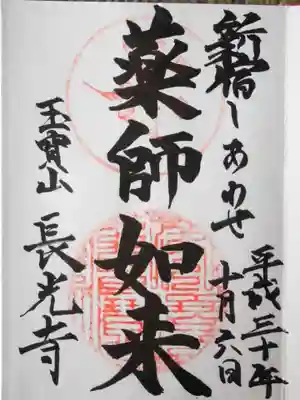 新宿しあわせ
平成三十年
十月六日
薬師如来
玉寳山
長光寺